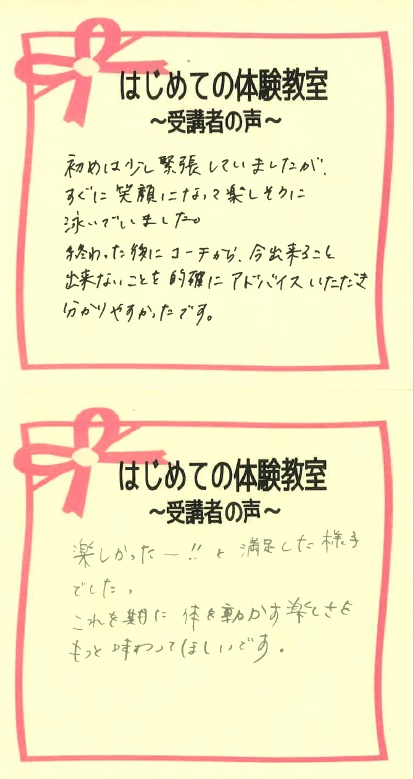 はじめての体験教室
～受講者の声～
初めは少し緊張していましたが、
すぐに笑顔になって楽しそうに
泳いでいました。
終わった後にコーチから、今出来ること
出来ないことを的確にアドバイスいただき
分かりやすかったです。
はじめての体験教室
～受講者の声～
楽しかったー!!と満足した様子
でした。
これを期に体を動かす楽しさを
もっと味わってほしいです。